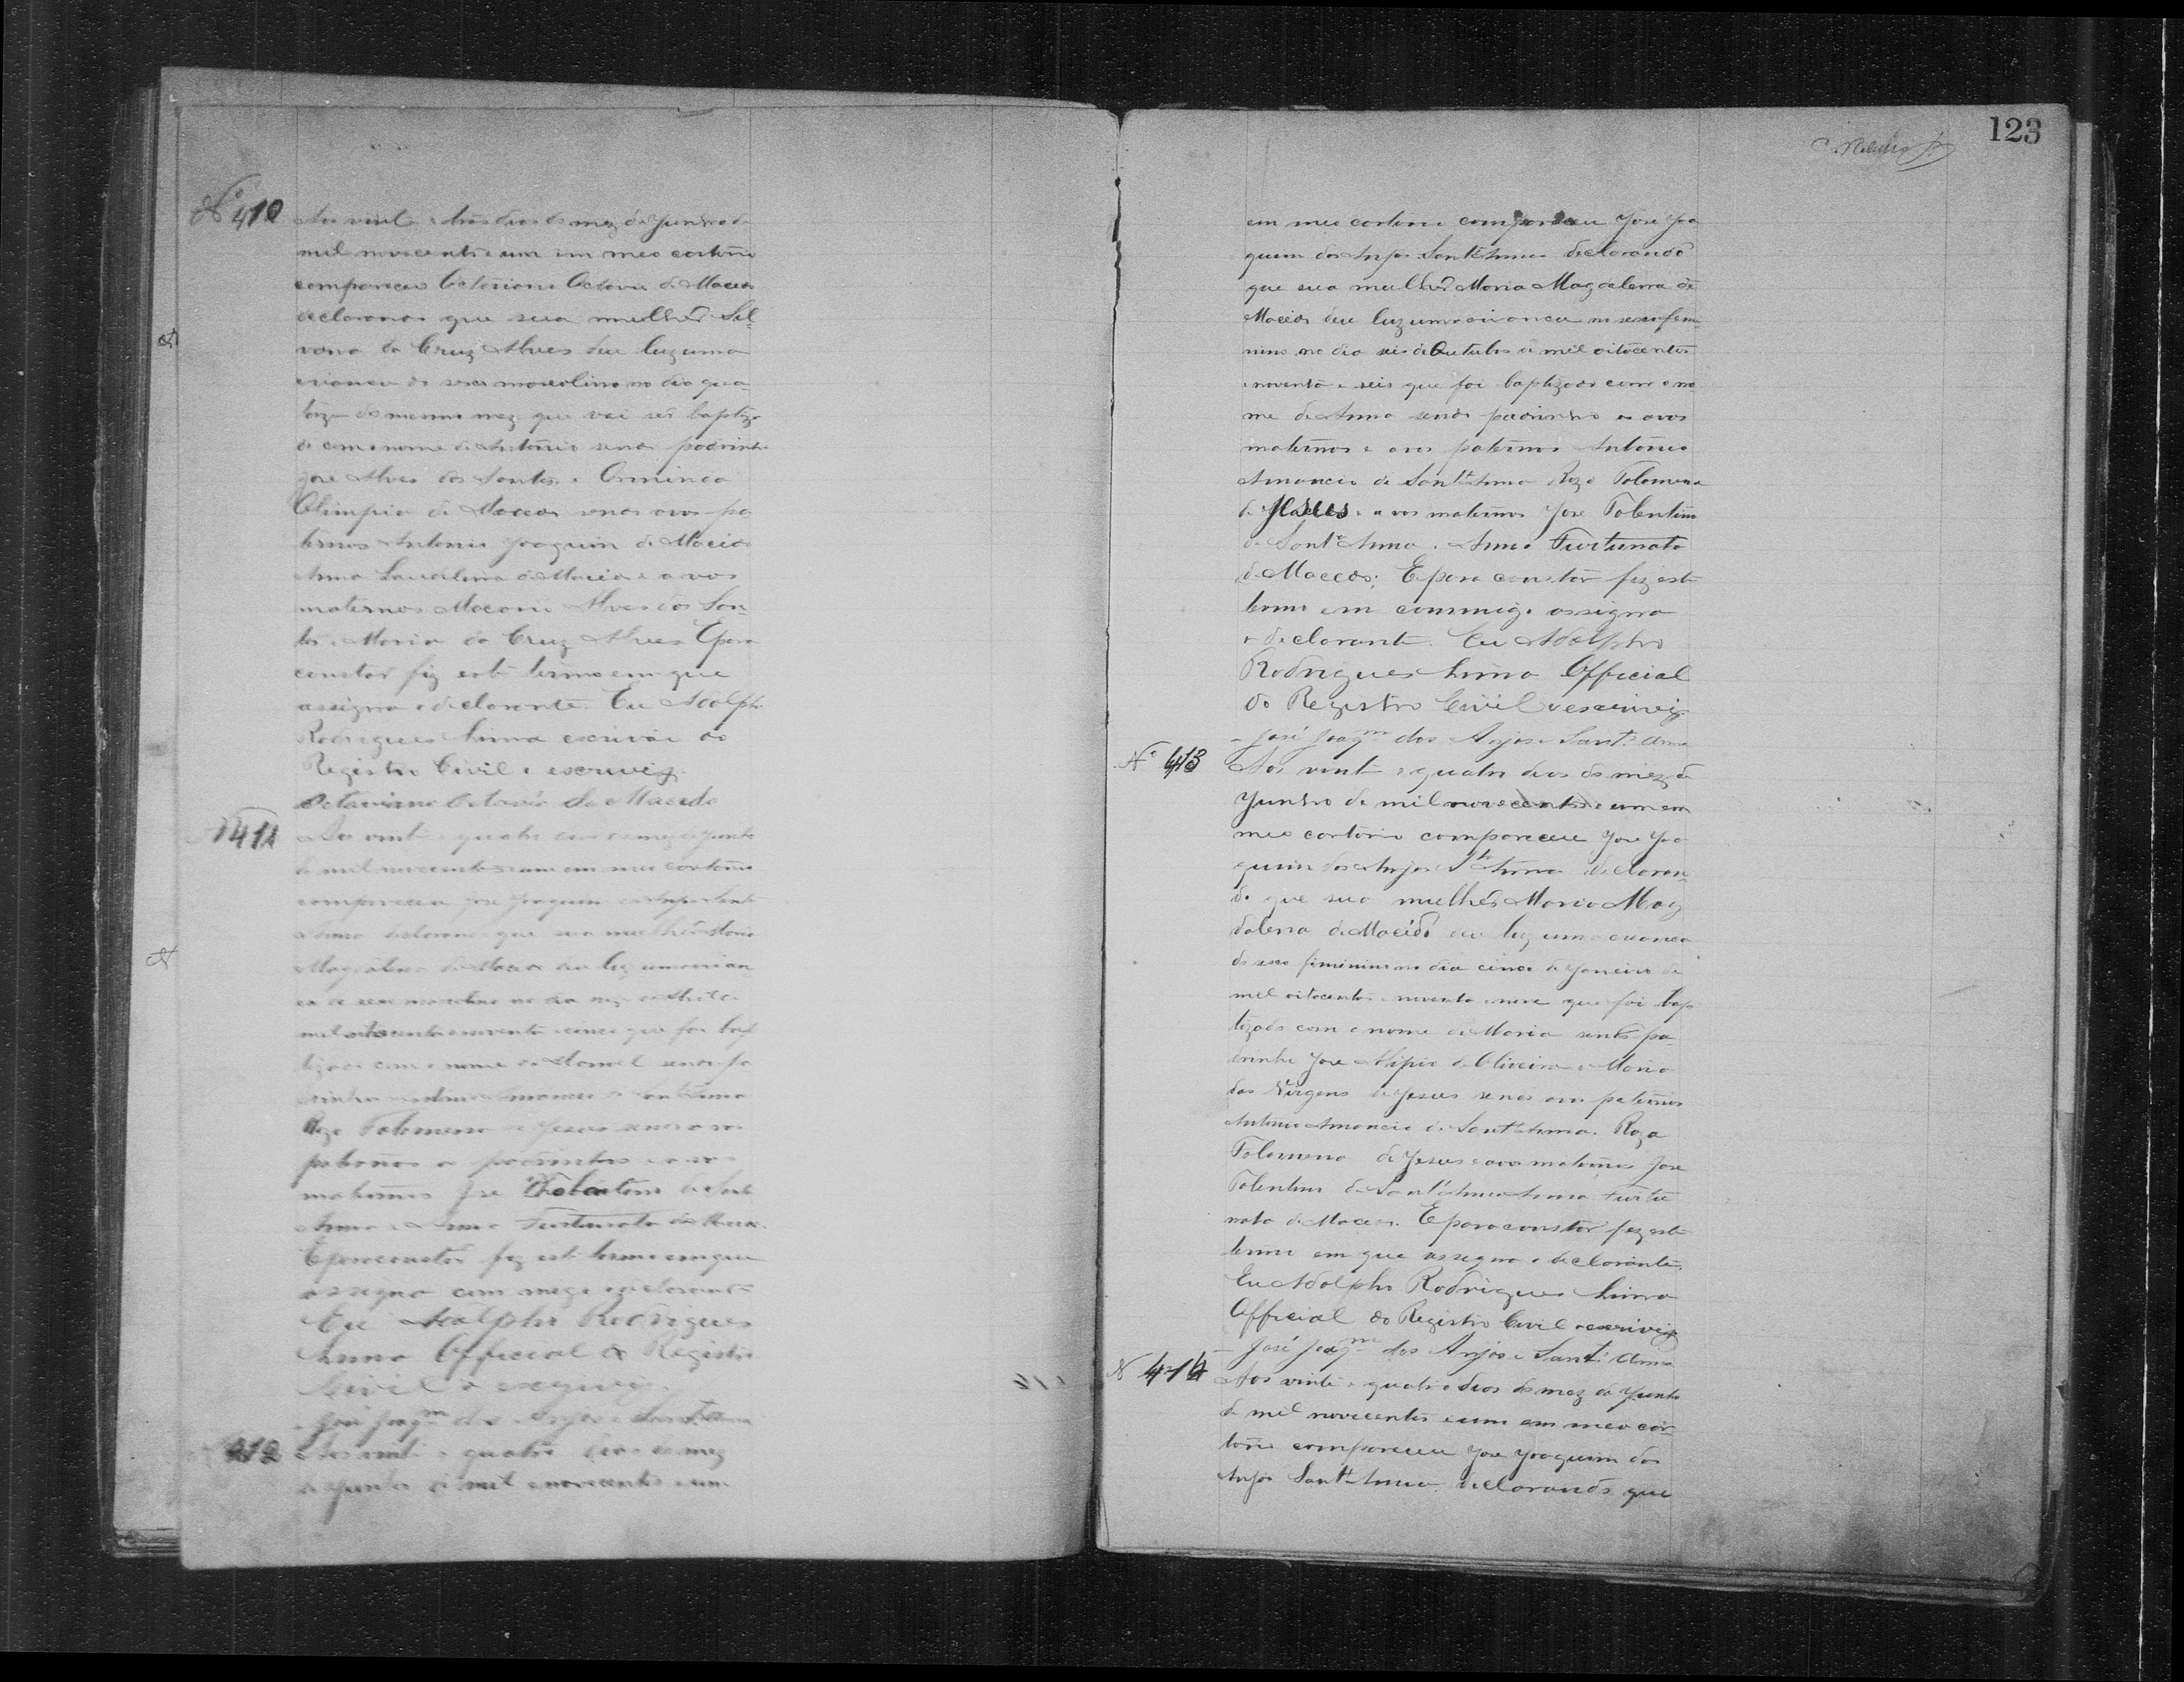 Nº 410
Aos vinte e tres dias do mez de Junho de
mil novecentos e um em meo cartorio
compareceo Octaviano Octavio de Macedo
declarando que sua mulher Sil-
vana da Cruz Alves deu luz uma
criança do sexo mascolino no dia qua-
torze do mesmo mez que vai ser baptiza
do com o nome de Antonio sendo padrinho
José Alves dos Santos e Erminda
Olimpia de Macedo sendo avos pa-
ternos Antonio Joaquim de Macedo
Anna de Macedo e avos
maternos Macario Alves dos San-
tos e Maria da Cruz Alves E para
constar fiz este termo em que
assigna o declarante. Eu Adolpho
Rodrigues Lima escrivão do
Registro Civil o escrevi
Octaviano Octavio de Macedo
Nº 411
Aos vinte e quatro dias do mez de Junho
de mil novecentos e um em meu cartorio
compareceu José Joaquim dos Anjos Sant
Anna declarando que sua mulher Maria
Magdalena de Macedo deu luz uma crian-
ça de sexo masculino no dia
mil oitocentos e noventa e cinco que foi bap
tizado com o nome de Manoel sendo pa
drinhos Antonio Amancio de Sant Anna
Roza Folomena de Jesus sendo avos
paternos os padrinhos e avos
maternos José Tolentino de Sant
Anna e Anna Furtunata de Macedo.
E para constar fiz este termo em que
assigna com migo o declarante
Eu Adolpho Rodrigues
Lima Official do Registro
Civil o escrivi.
José Joaqm dos Anjos e Sant'Anna
412
Aos vinte e quatro dias do mez
de Junho de mil e novecentos e um
123
em meu cartorio compareceu José Joa
quim dos Anjos Sant'Anna declarando
que sua mulher Maria Magdalena de
Macedo deu luz uma criança no sexo femi
nino no dia seis de Outubro de mil oitocentos
e noventa e seis que foi baptizado com o no
me de Anna sendo padrinho os avos
maternos e avos paternos Antonio
Amancio de Sant'Anna Roza Folomena
de Jesus e avos maternos José Tolentino
de Sant'Anna e Anna Furtunata
de Macedo; E para constar fiz este
termo em commigo assigna
o declarante. Eu Adolpho
Rodrigues Lima Official
do Registro Civil o escrivi
José Joaqm dos Anjos e Sant'Anna
Nº 413
Aos vinte e quatro dias do mez de
Junho de mil novecentos e um em
meo cartorio compareceu José Joa
quim dos Anjos Sta Anna declaran-
do que sua mulher Maria Mag
dalena de Macêdo deu luz uma creança
do sexo feminino no dia cinco de Janeiro de
mil oitocentos e noventa e nove que foi bap
tizado com o nome de Maria sendo pa-
drinho José Alipio de Oliveira e Maria
das Virgens de Jesus sendo avos paternos
Antonio Amancio de Sant'Anna. Roza
Folomena de Jesus e avos maternos José
Tolentino de Sant'Anna Anna Furtu
nata de Macedo. E para constar fiz este
termo em que assigna o declarante.
Eu Adolpho Rodrigues Lima
Official do Registro Civil o escrivi
José Joaqm dos Anjos e Sant'Anna
N 414
Aos vinte e quatro dias do mez de Junho
de mil novecentos e um em meo car
torio compareceu José Joaquim dos
Anjos Sant'Anna declarando que